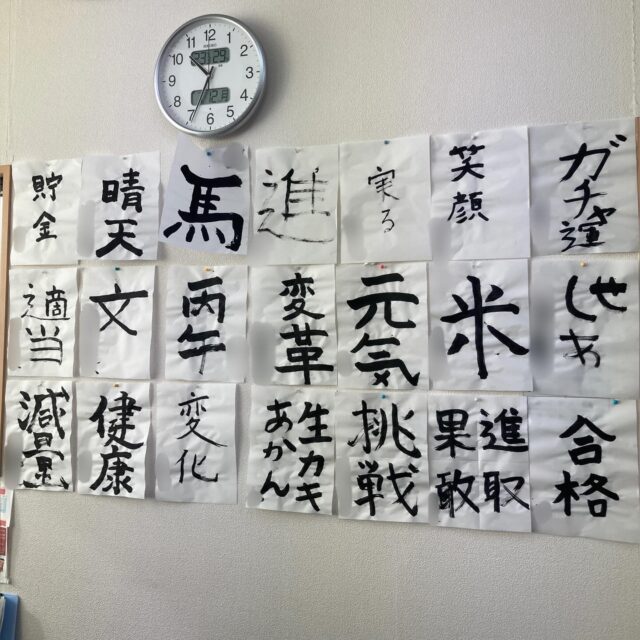 12
1
2
3
4
5
6
7
8
9
10
11
SEIKO
貯金
晴天
馬
進
実る
笑顔
ガチ
適当
文
丙午
変革
元気
米
減量
健康
変化
生カキ
あかん
挑戦
進取
果敢
合格